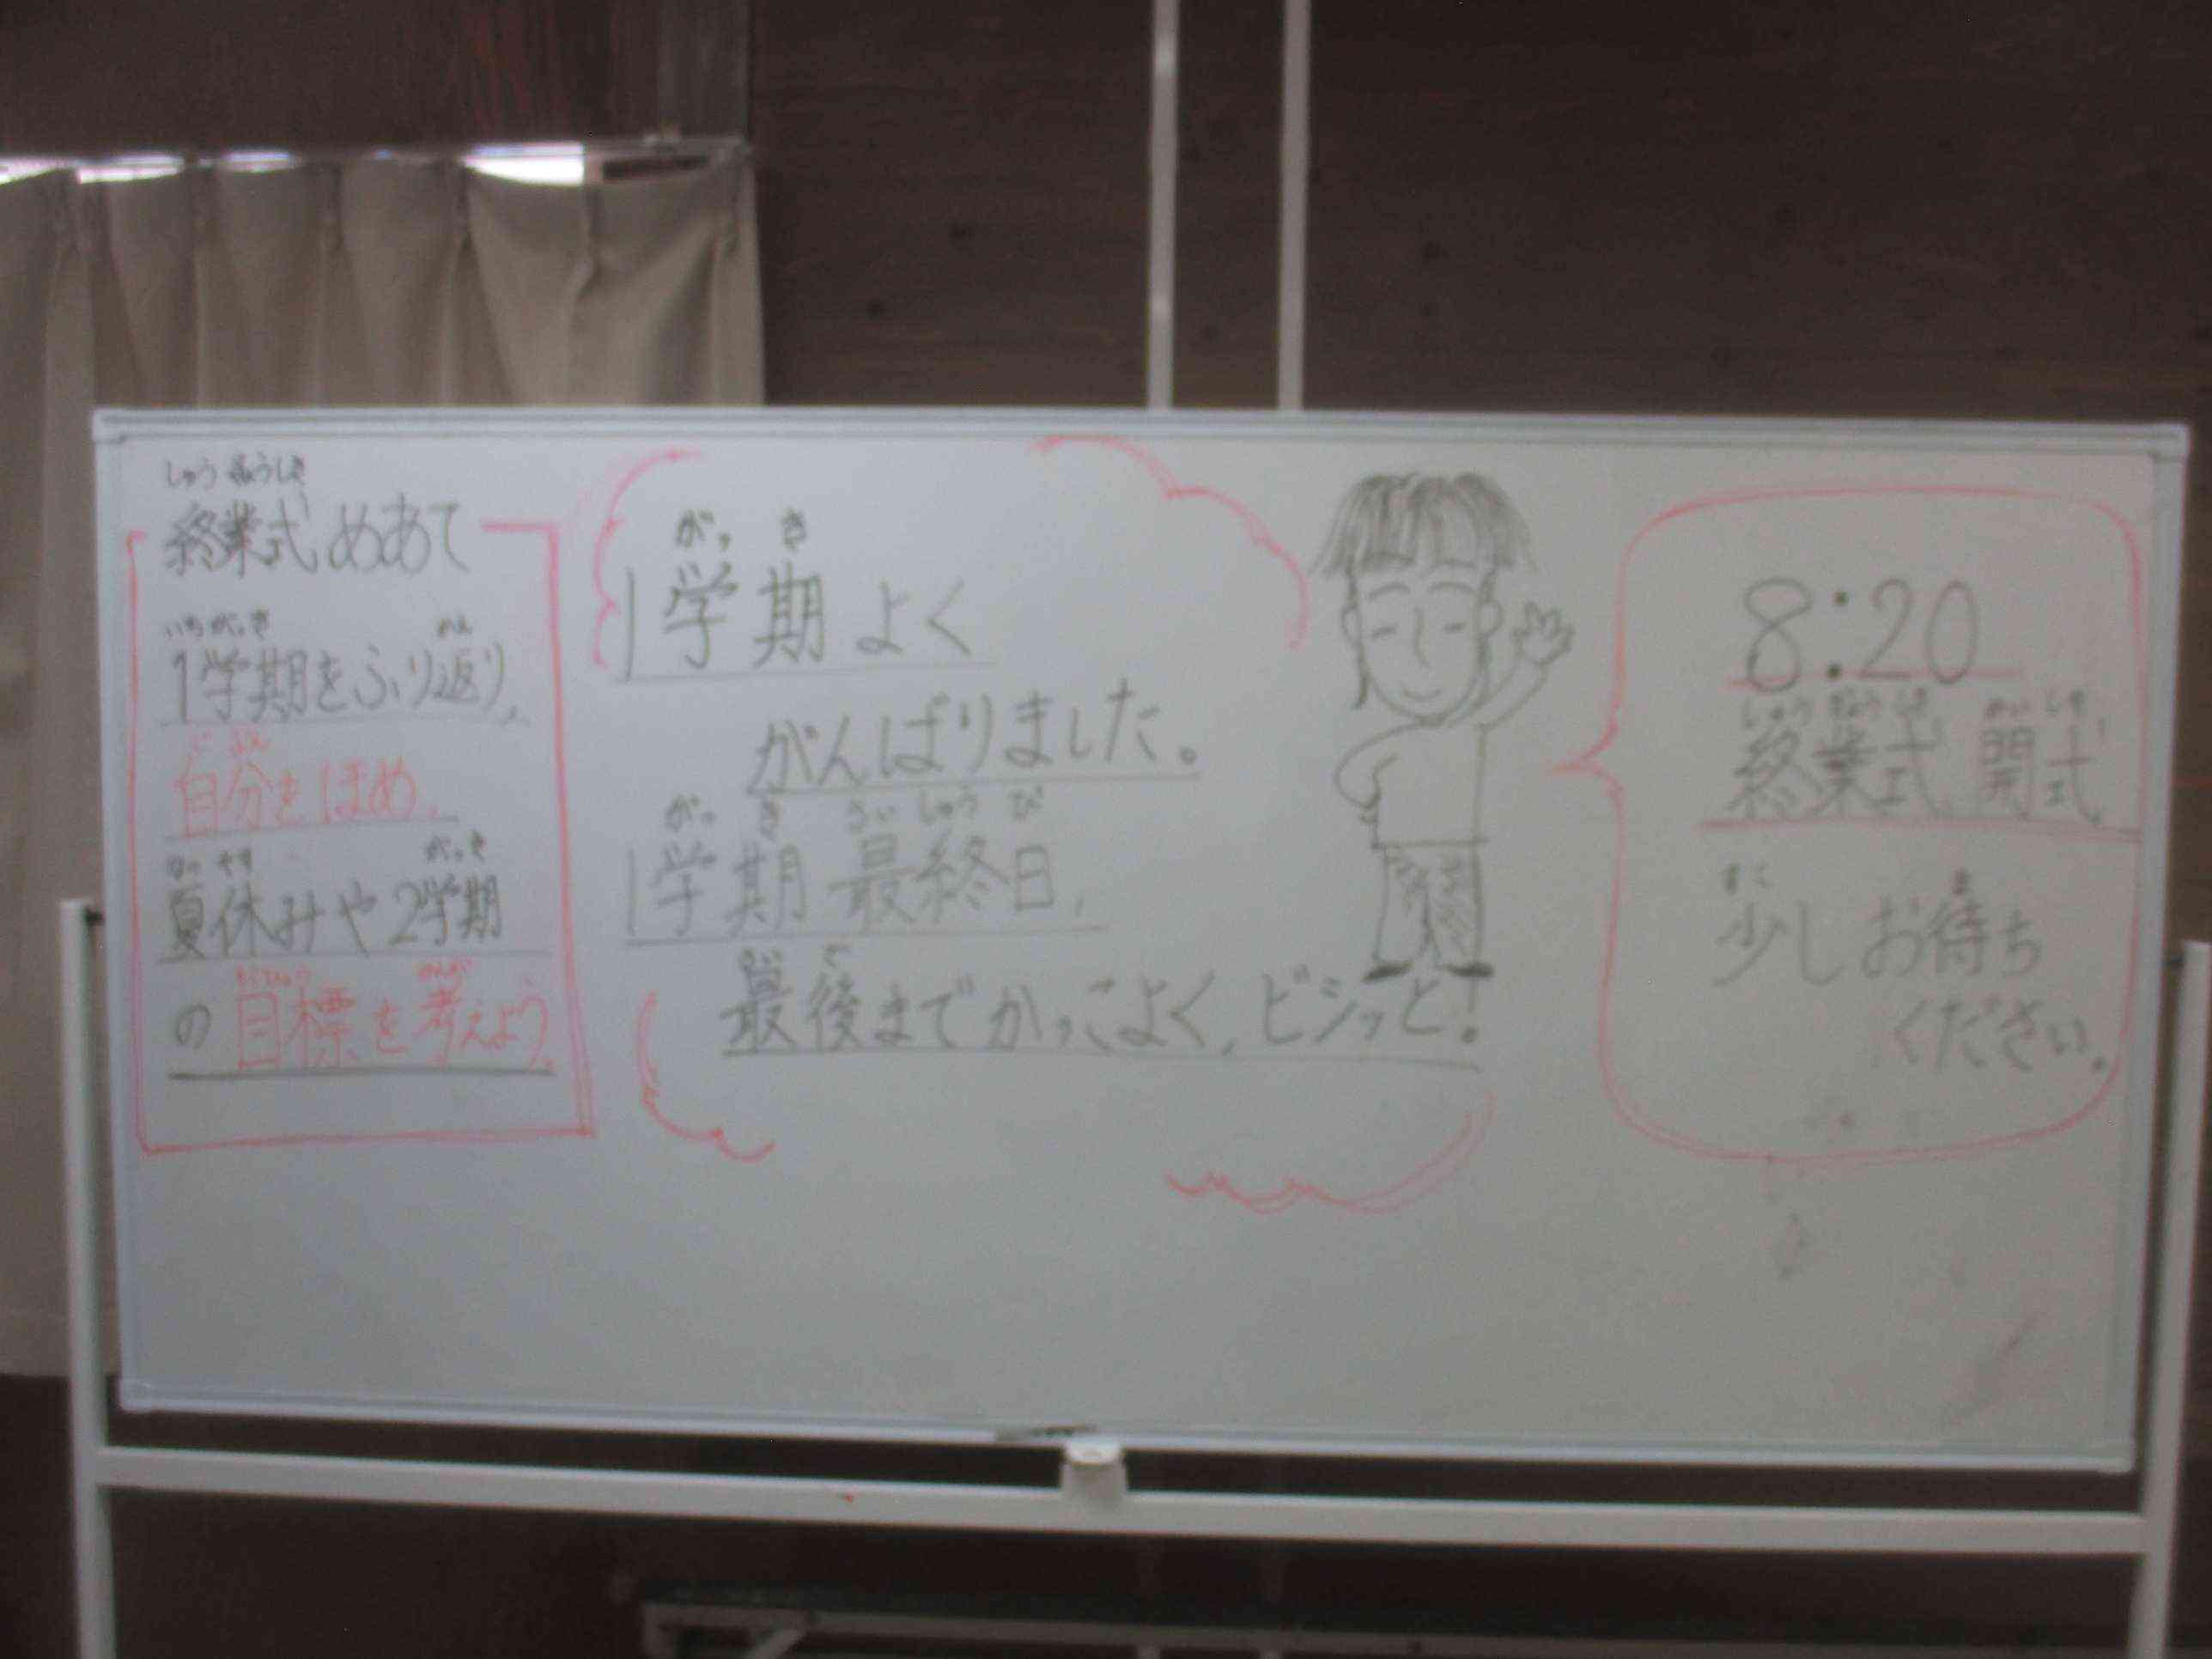 しゅうぎょうしき
終業式めあて
いちがっき かえ
1学期をふり返り、
じ ぶん
自分をほめ、
なつ やす がっき
夏休みや2学期
もくひょう かんが
の目標を考えよう。
がっ き
1学期よく
がんばりました。
がっ き さい しゅう び
1学期最終日、
さい ご
最後までかっこよく、ビシッと!
8:20
しゅう ぎょう しき かい しき
終業式 開式
すこ ま
少しお待ち
ください。